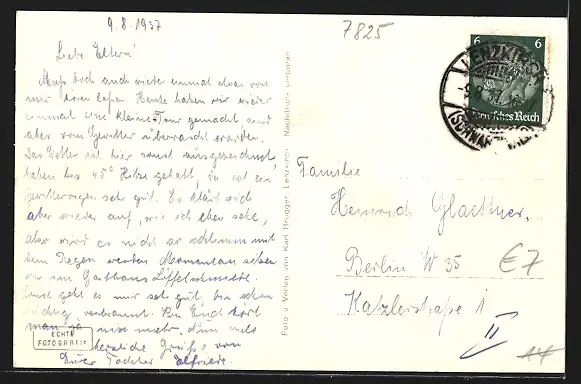 9.8.1937
7825
Liebe Eltern!
Muß doch auch wieder einmal etwas von
mir hören laßen. Heute haben wir wieder
einmal eine kleine Tour gemacht sind
aber vom Gewitter überrascht worden.
Das Wetter ist hier sonst ausgezeichnet,
haben bis 45° Hitze gehabt, da ist ein
Gewitterregen sehr gut. Es klärt sich
aber wieder auf, wie ich eben sehe,
also wird es nicht so schlimm mit
dem Regen werden. Momentan sitzen
wir im Gasthaus Löffelschmiede.
Sonst geht es mir sehr gut, bin schon
verbrannt. Bei Euch hört
man ja nichts mehr,
herzliche Grüße von
Eurer Tochter Elfriede.
ECHTE
FOTOGRAFIE
Foto u. Verlag von Karl Brügger, Lenzkirch. Nachdruck verboten
6 6
Deutsches Reich
LENZKIRCH
(SCHWARZWALD)
Familie
Heinrich Glaettner,
Berlin W 35
Katzlerstraße 1
II
€7